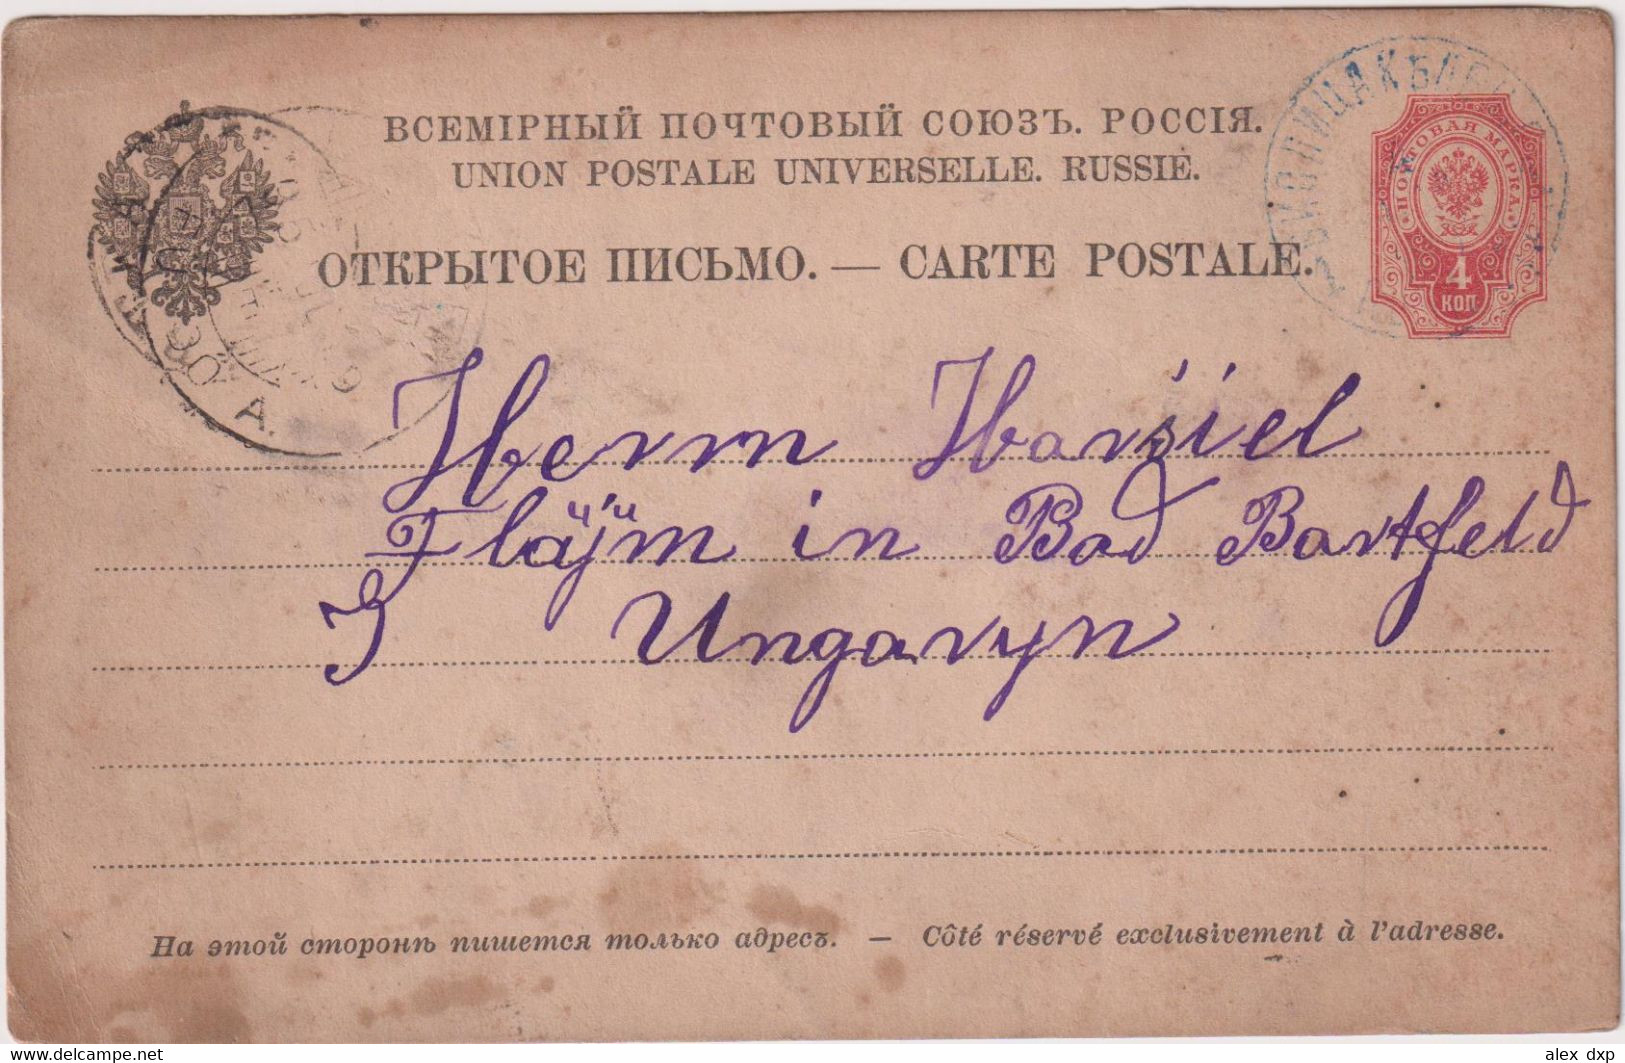 ВСЕМІРНЫЙ ПОЧТОВЫЙ СОЮЗЪ. РОССІЯ.
UNION POSTALE UNIVERSELLE. RUSSIE.
ОТКРЫТОЕ ПИСЬМО. — CARTE POSTALE.
ПОЧТОВАЯ МАРКА
4
КОП
Herrn
in Bad Bartfeld
Ungaryn
На этой сторонѣ пишется только адресъ. — Côté réservé exclusivement à l'adresse.
alex dxp
www.delcampe.net